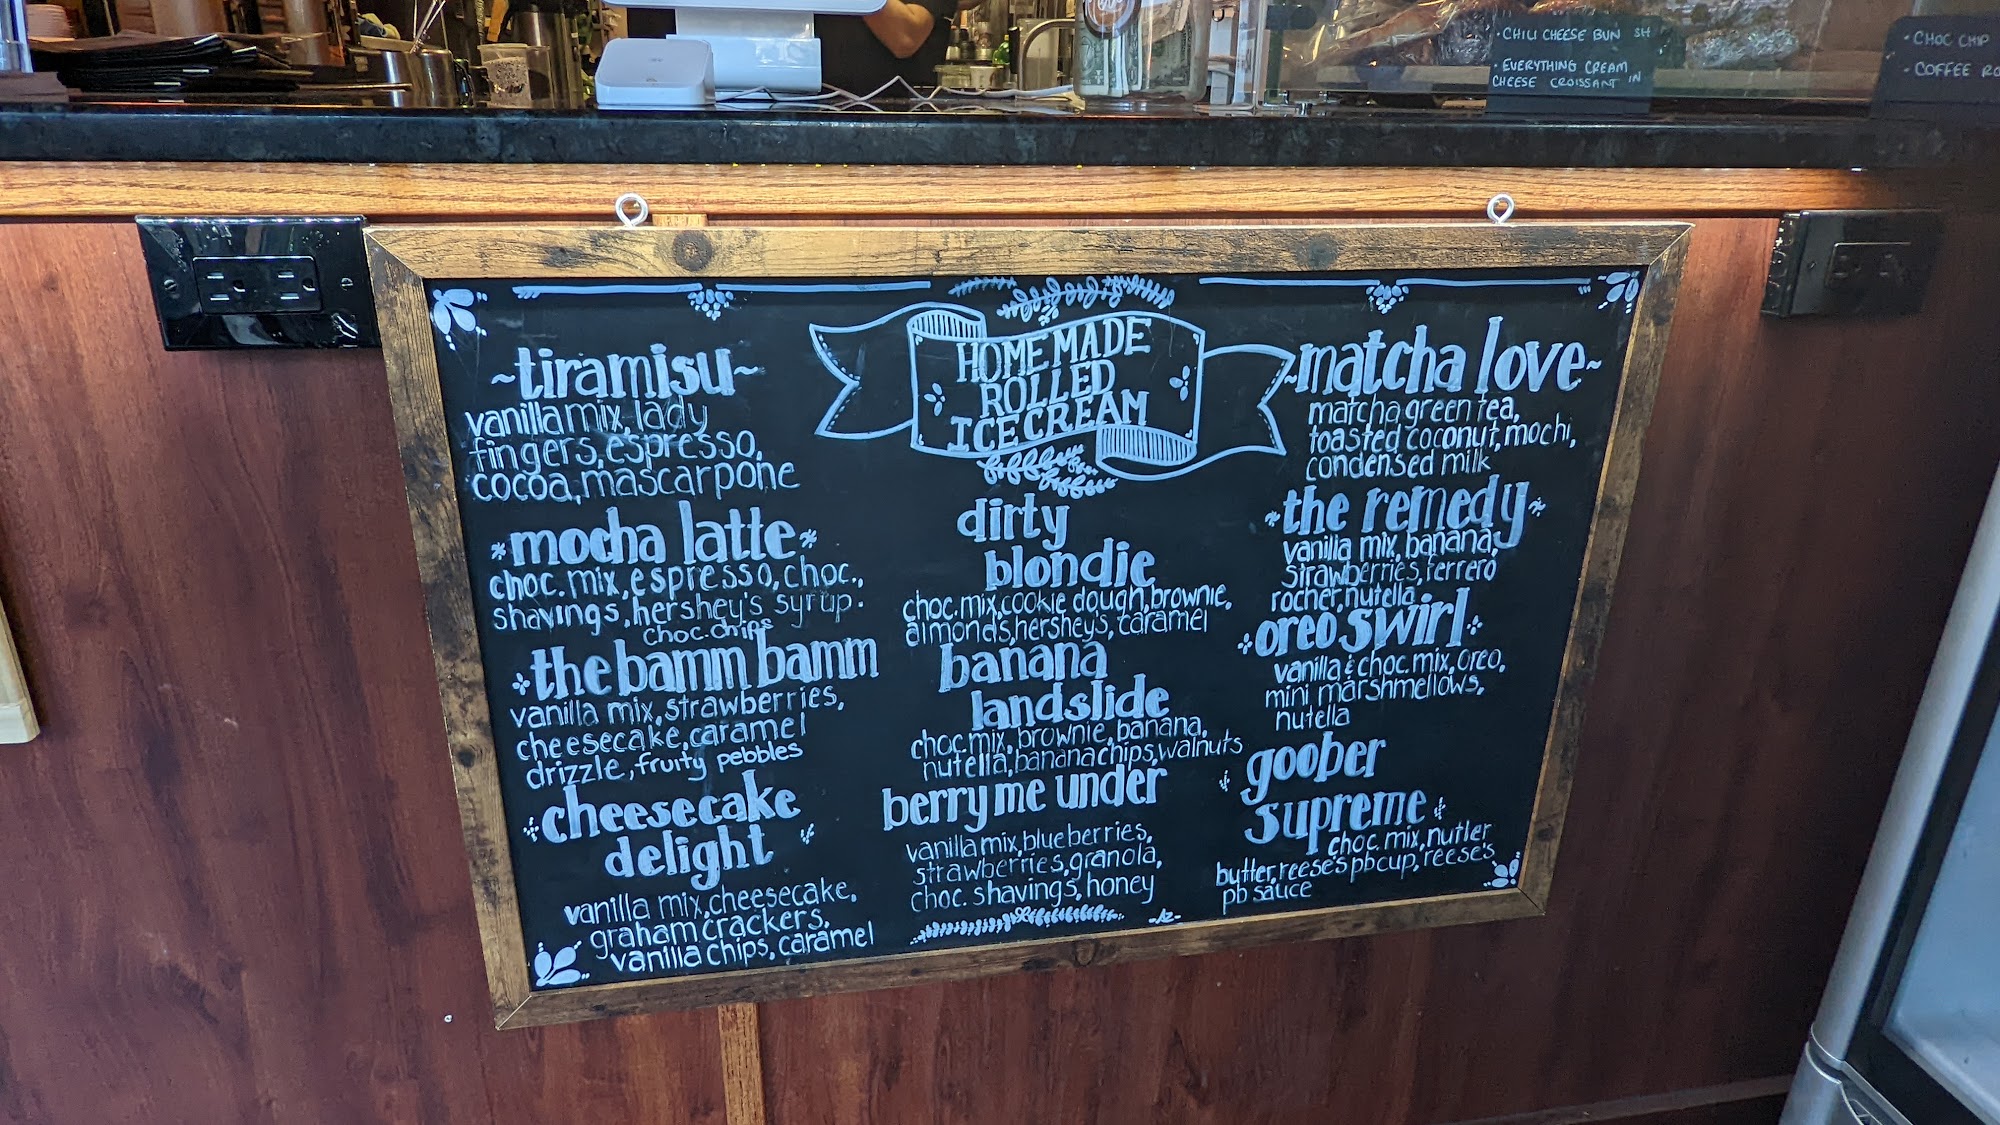 • CHILI CHEESE BUN SH
• EVERYTHING CREAM
CHEESE CROISSANT IN
• CHOC CHIP
• COFFEE RO
HOMEMADE
ROLLED
ICE CREAM
~tiramisu~
vanilla mix, lady
fingers, espresso,
cocoa, mascarpone
mocha latte
choc. mix, espresso, choc.,
shavings, hershey's syrup.
choc. chips
the bamm bamm
vanilla mix, strawberries,
cheesecake, caramel
drizzle, fruity pebbles
cheesecake
delight
vanilla mix, cheesecake,
graham crackers,
vanilla chips, caramel
dirty
blondie
choc. mix, cookie dough, brownie,
almonds, hershey's, caramel
banana
landslide
choc mix, brownie, banana,
nutella, banana chips, walnuts
berry me under
vanilla mix, blueberries,
strawberries, granola,
choc. shavings, honey
~matcha love~
matcha green tea,
toasted coconut, mochi,
condensed milk
the remedy
vanilla mix, banana,
strawberries, ferrero
rocher, nutella
oreo swirl
vanilla & choc. mix, oreo,
mini marshmellows,
nutella
goober
supreme
choc. mix, nutter
butter, reese's pb cup, reese's
pb sauce